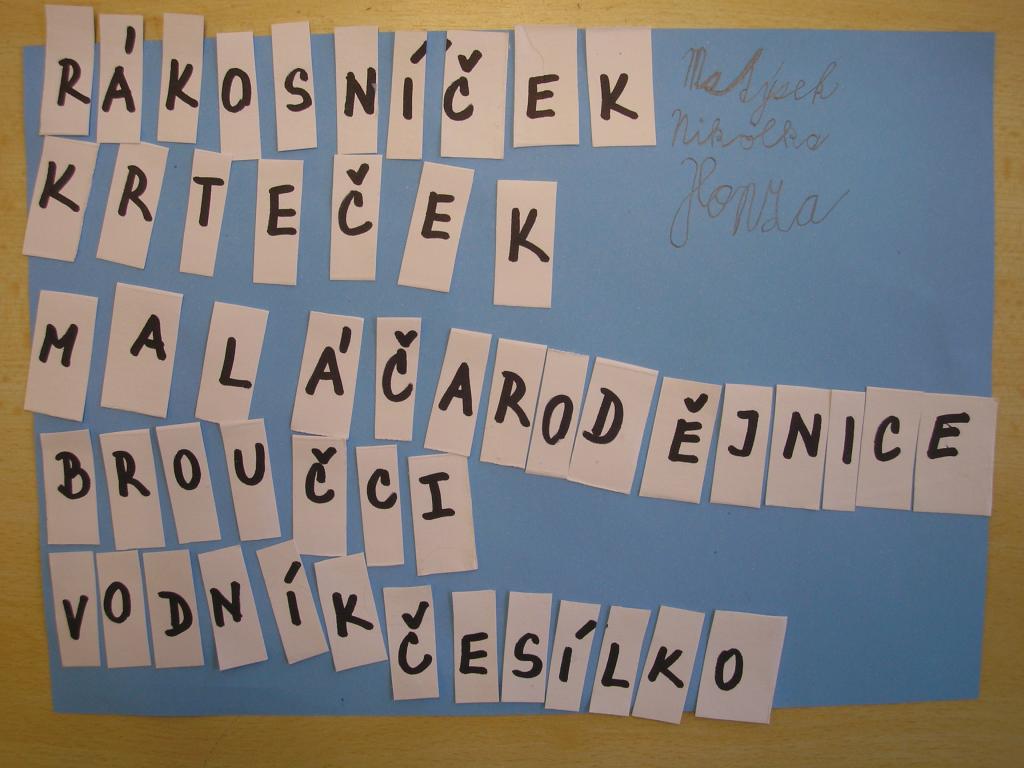 RÁKOSNÍČEK
Matýsek
Nikolka
Honza
KRTEČEK
MALÁ ČARODĚJNICE
BROUČCI
VODNÍK ČESÍLKO